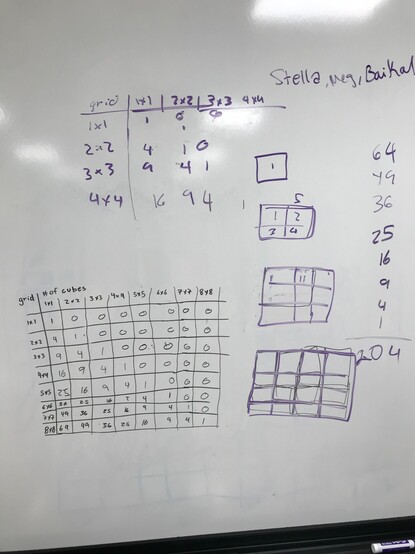 Stella, Meg, Baikal
grid 1x1 2x2 3x3 4x4
1x1 1 0 0
1
2x2 4 1 0
3x3 9 4 1
4x4 16 9 4 1
1
5
1 2
3 4
1 11
64
49
36
25
16
9
4
1
204
# of cubes
grid 1x1 2x2 3x3 4x4 5x5 6x6 7x7 8x8
1x1 1 0 0 0 0 0 0 0
2x2 4 1 0 0 0 0 0 0
3x3 9 4 1 0 0 0 0 0
4x4 16 9 4 1 0 0 0 0
5x5 25 16 9 4 1 0 0 0
6x6 36 25 16 9 4 1 0 0
7x7 49 36 25 16 9 4 1 0
8x8 64 49 36 25 16 9 4 1